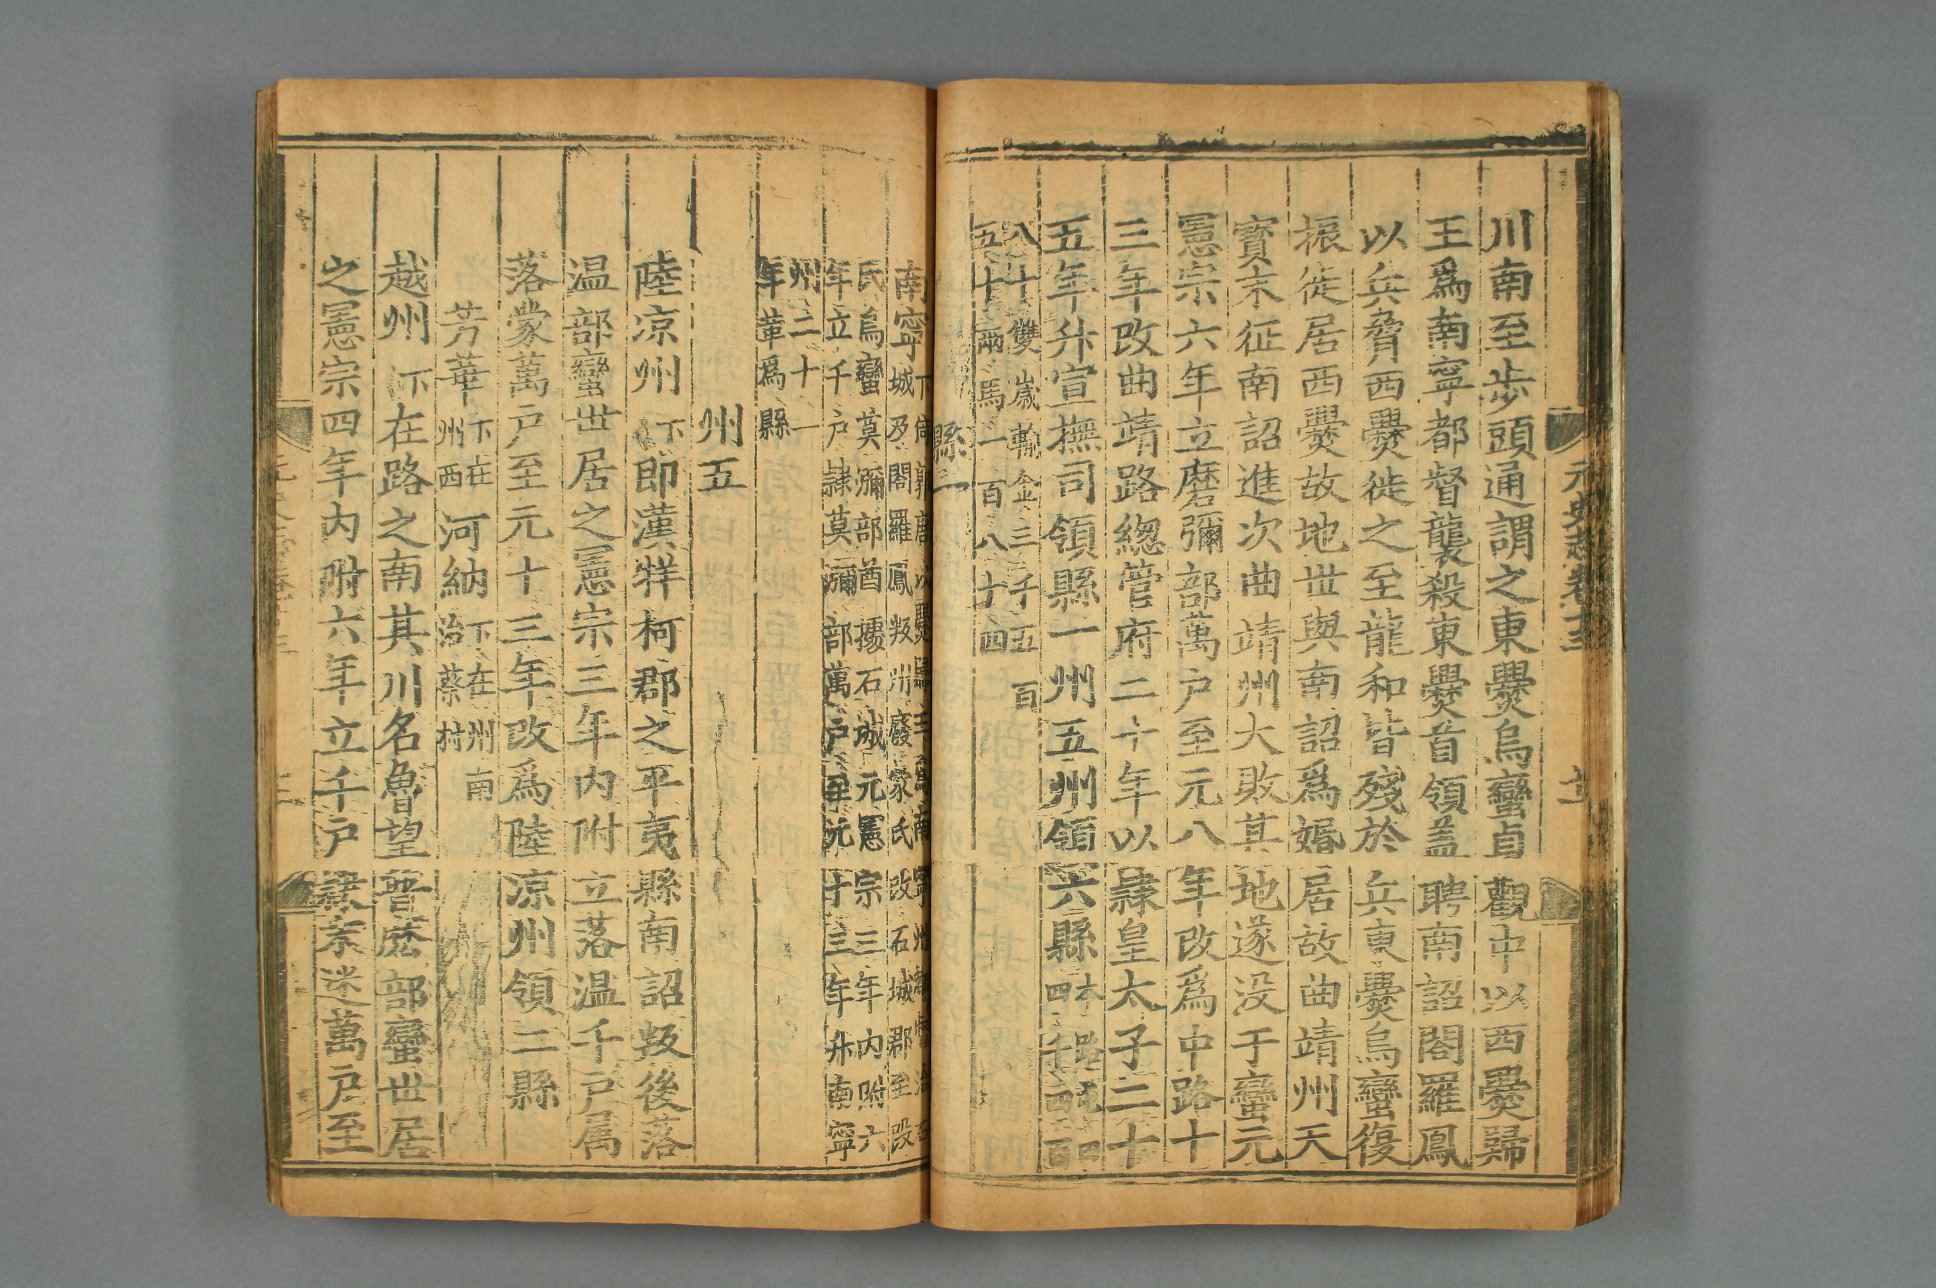 元史志卷十三
川南至步頭通謂之東爨烏蠻貞觀中以西爨歸
王爲南寧都督襲殺東爨首領盖聘南詔閣羅鳳
以兵脅西爨徙之至龍和皆殘於兵東爨烏蠻復
振徙居西爨故地世與南詔爲婚居故曲靖州天
寶末征南詔進次曲靖州大敗其地遂没于蠻元
憲宗六年立磨彌部萬户至元八年改爲中路十
三年改曲靖路緫管府二十年以隷皇太子二十
五年升宣撫司領縣一州五州領六縣本路屯田
四千四百
八十雙歲輸金三千五百
五十兩馬一百八十四
縣一
南寧下倚郭唐以爨歸王爲南寧州都督治石
城及閣羅鳳叛州廢蒙氏改石城郡至段
氏烏蠻莫彌部酋據石城元憲宗三年内附六
年立千户隷莫彌部萬户至元十三年升南寧
州二十一
年革爲縣
州五
陸凉州下即漢牂柯郡之平夷縣南詔叛後落
温部蠻世居之憲宗三年内附立落温千户属
落蒙萬户至元十三年改爲陸凉州領二縣
芳華下在州西河納下在州南治蔡村
越州下在路之南其川名魯望普麽部蠻世居
之憲宗四年内附六年立千户隷末迷萬户至